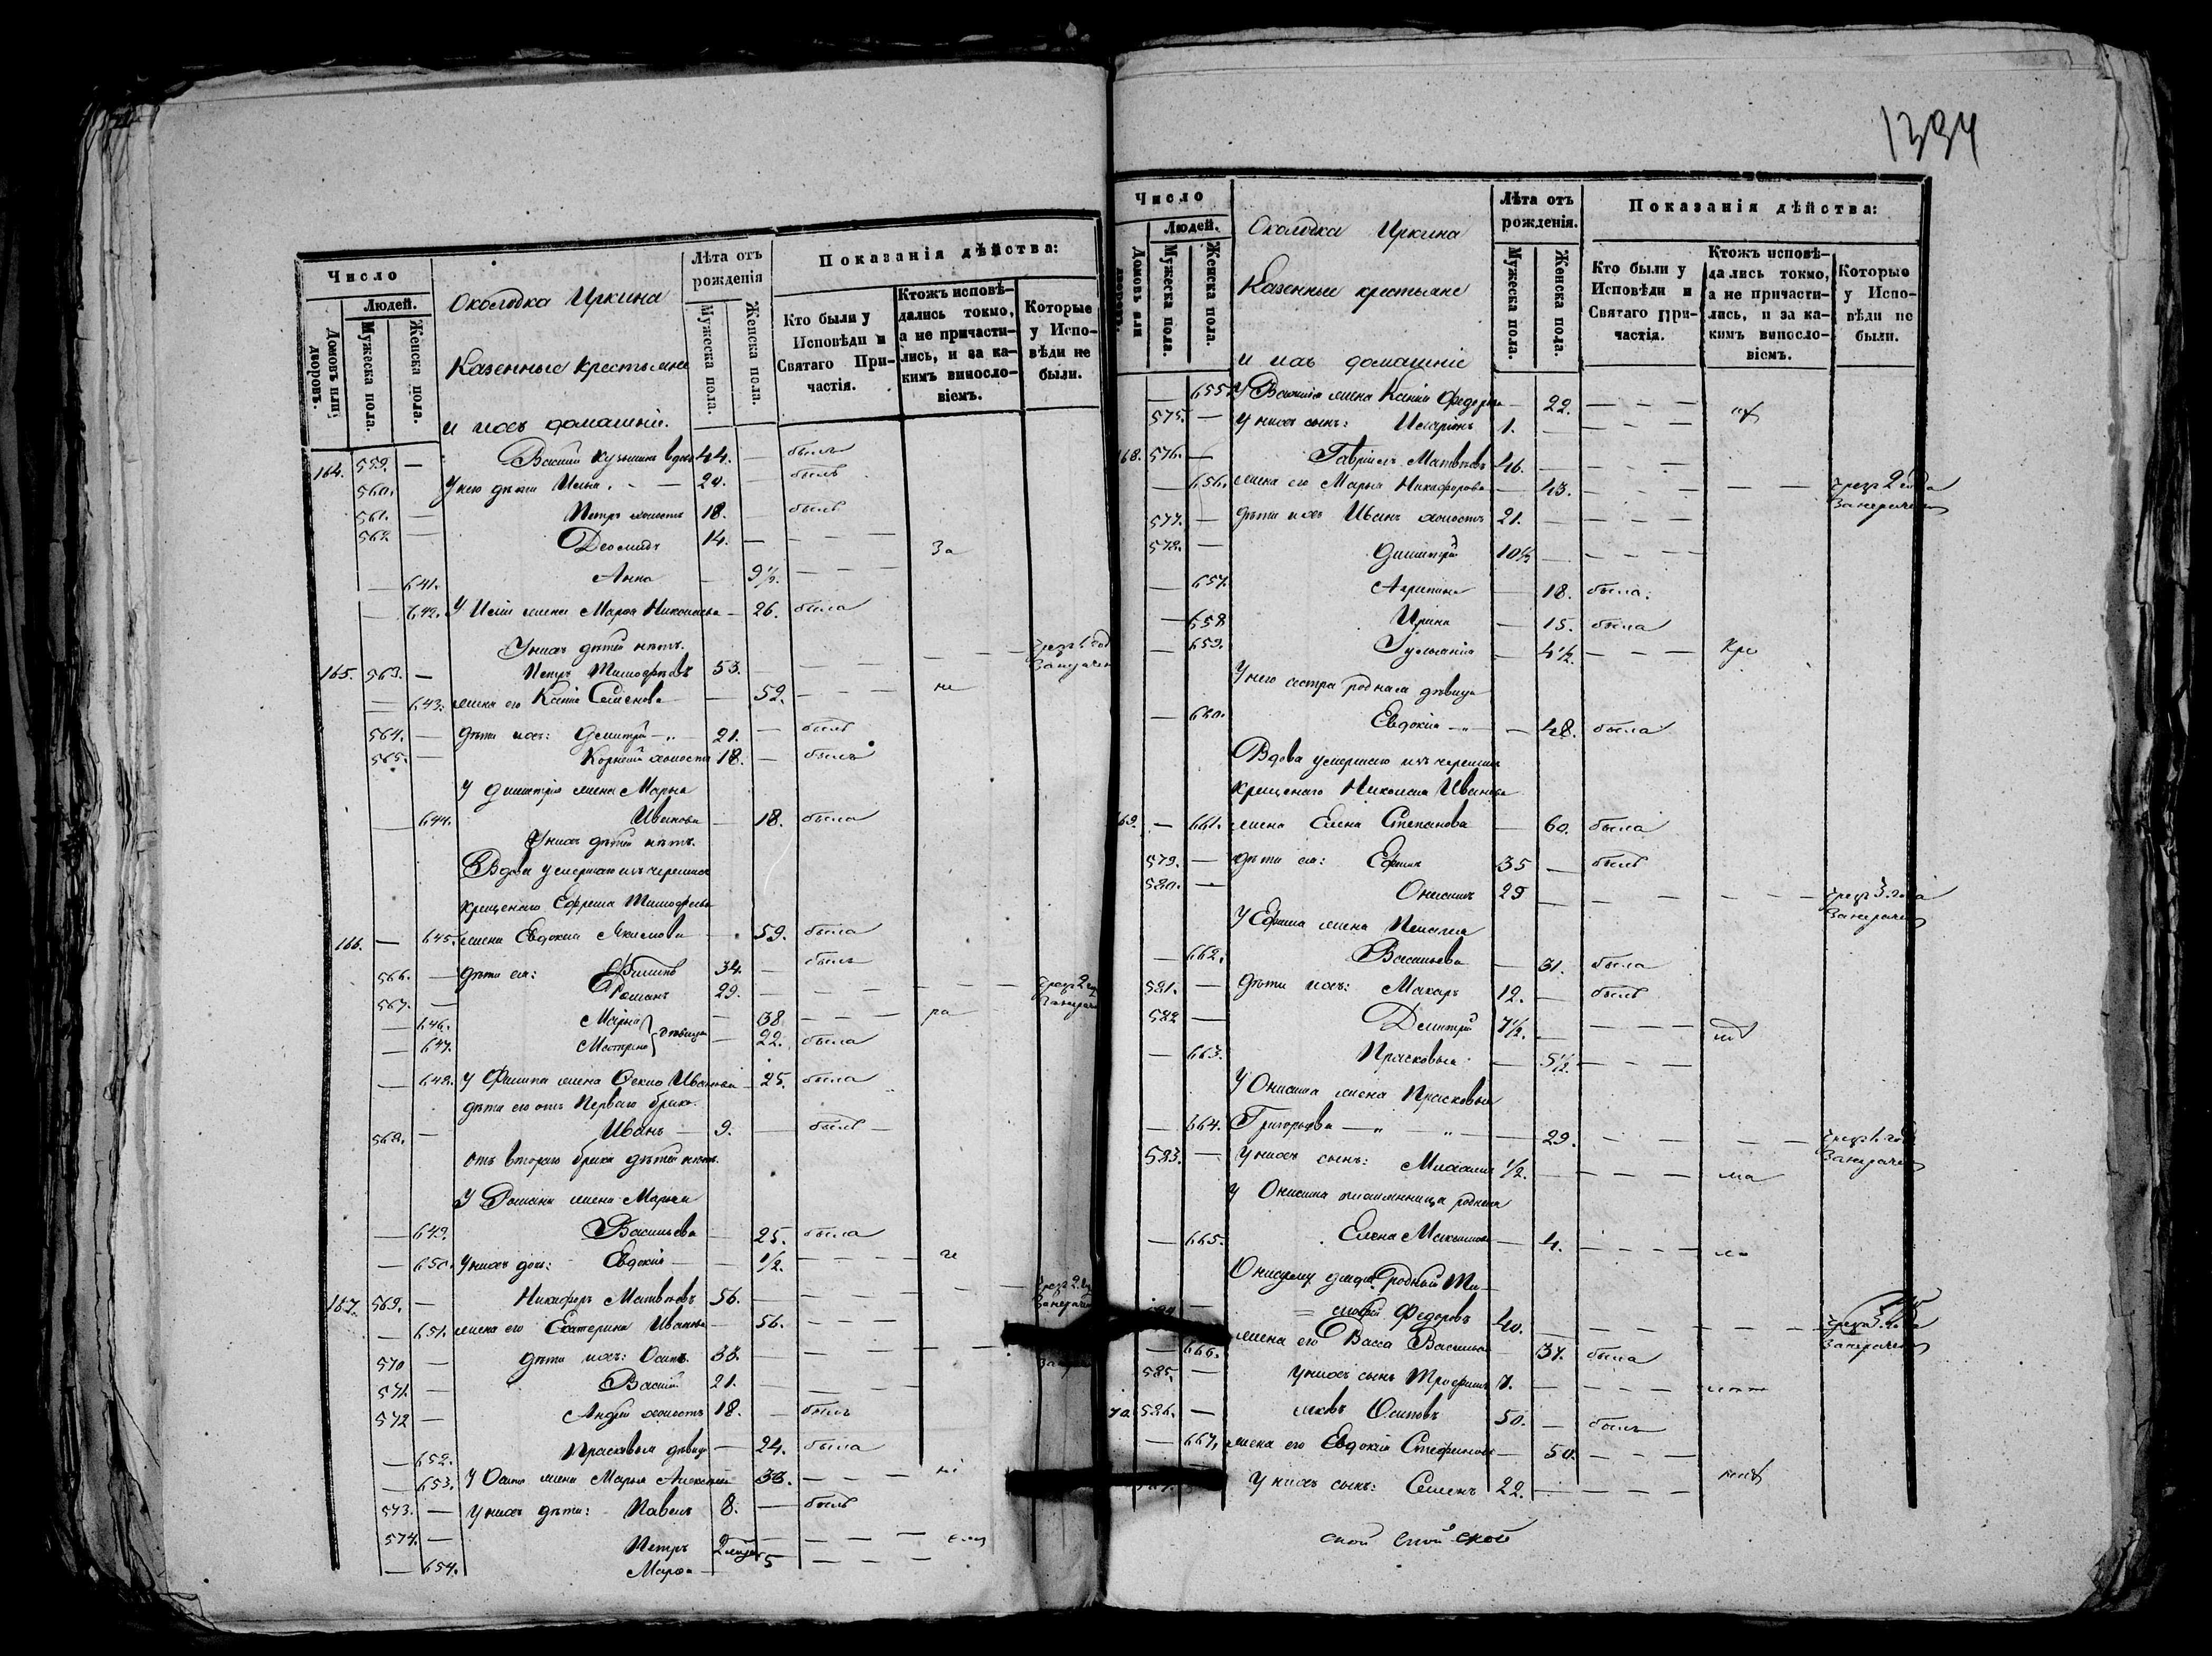 Число
Людей.
Домовъ или дворовъ.
Мужеска пола.
Женска пола.
Околодка Иркина
Казенные крестьяне
и ихъ домашніе.
Лѣта отъ рожденія
Мужеска пола.
Женска пола.
Показанія дѣйства:
Кто были у Исповѣди и Святаго Причастія.
Ктожъ исповѣдались токмо, а не причастились, и за какимъ винословіемъ.
Которые у Исповѣди не были.
164. 559. — Василій Кузьминъ вдовъ 44. — былъ
560. У него дѣти Илья 20. — былъ
561. — Петръ холостъ 18. — былъ
562 — Деомидъ 14. — — — — За
— 641. Анна — 9½. — — —
— 642. У Ильи жена Марѳа Николаева — 26. была
У нихъ дѣтей нѣтъ.
165. 563. — Петръ Тимофѣевъ 53. — — — — —
— 643. жена его Ксенія Семенова — 52. — — — не
564. — дѣти ихъ: Димитрій —„— 21. — былъ
565. — Корнилій холостъ 18. — былъ
У Димитрія жена Марья
— 644. Иванова — 18. была
У нихъ дѣтей нѣтъ.
Вдова умершаго изъ черемисъ
крещенаго Ефрема Тимофѣева
166. — 645. жена Евдокія Якимова — 59. была
566. — дѣти ея: Филипъ 34. — былъ
567. — Романъ 29. — — — — —
— 646. Марья — 38 — — — ра
— 647. Матрена } дѣвицы — 22. была
— 648. У Филипа жена Ѳекла Иванова — 25. была
дѣти его отъ перваго брака.
568. — Иванъ — 9. — былъ —
отъ втораго брака дѣтей нѣтъ.
У Романа жена Марья
— 649. Васильева — 25. была
— 650. У нихъ дочь: Евдокія — ½. — — — че
167. 569. — Никифоръ Матвѣевъ 56. — — — —
— 651. жена его Екатерина Иванова — 56. — — —
570 — дѣти ихъ: Осипъ. 33. — — — —
571. — Василій 21. — — — —
572 — Андрей холостъ 18. — былъ
— 652. Прасковья дѣвица — 24. была
— 653. У Осипа жена Марья 33. — — —
573. — У нихъ дѣти: Павелъ 8. — былъ
574. — Петръ — — —
— 654. Марѳа — 5 — — —
1394
Число
Людей.
Домовъ или
Мужеска пола.
Женска пола.
Околодка Иркина
Казенные крестьяне
и ихъ домашніе
Лѣта отъ рожденія.
Мужеска пола.
Женска пола.
Показанія дѣйства:
Кто были у Исповѣди и Святаго Причастія.
Ктожъ исповѣдались токмо, а не причастились, и за какимъ винословіемъ.
Которые у Исповѣди не были.
— 655. У Василія жена Ксенія Федорова — 22. — — —
575. — У нихъ сынъ: Иларіонъ 1. — — —
168. 576. — Гавріилъ Матвѣевъ 46. — — — —
— 656. жена его Марья Никифорова — 43. — — — — — чрезъ 2 года
577. — дѣти ихъ Иванъ холостъ 21. — — — —
578. — Димитрій 10½ — — — —
— 657. Агрипина — 18. была.
— 658 Ирина — 15. была
— 659. Іульянія — 4½. — — — кре
У него сестра родная дѣвица
— 660. Евдокія —„— — 48. была
Вдова умершаго изъ черемисъ
крещенаго Николая Иванова
169. — 661. жена Елена Степанова — 60. была
579. — дѣти ея: Ефимъ 35 — былъ
580. — Онисимъ 29 — — — — — чрезъ 3. года
У Ефима жена Пелагея
— 662. Васильева — 31. была
581. — дѣти ихъ: Макаръ 12. — былъ
582 — Димитрій 7½. — — — —
— 663. Прасковья — 5½. — — —
У Онисима жена Прасковья
— 664. Григорьева —„— — 29. — — — — чрезъ 1. годъ
583. — У нихъ сынъ: Михаилъ ½. — — — — ма
У Онисима племянница родная
— 665. Елена Максимова — 4. — — — —
Онисиму дядя родный Ти-
— = мофѣй Федоровъ 40. — — — — —
— 666. жена его Васса Васильева — 37. была
585. — У нихъ сынъ Трофимъ 7. — — — —
586. — Яковъ Осиповъ 50. — былъ
— 667. жена его Евдокія Стефанова — 50. — — —
У нихъ сынъ: Семенъ 22. — — — —
ской ской ской